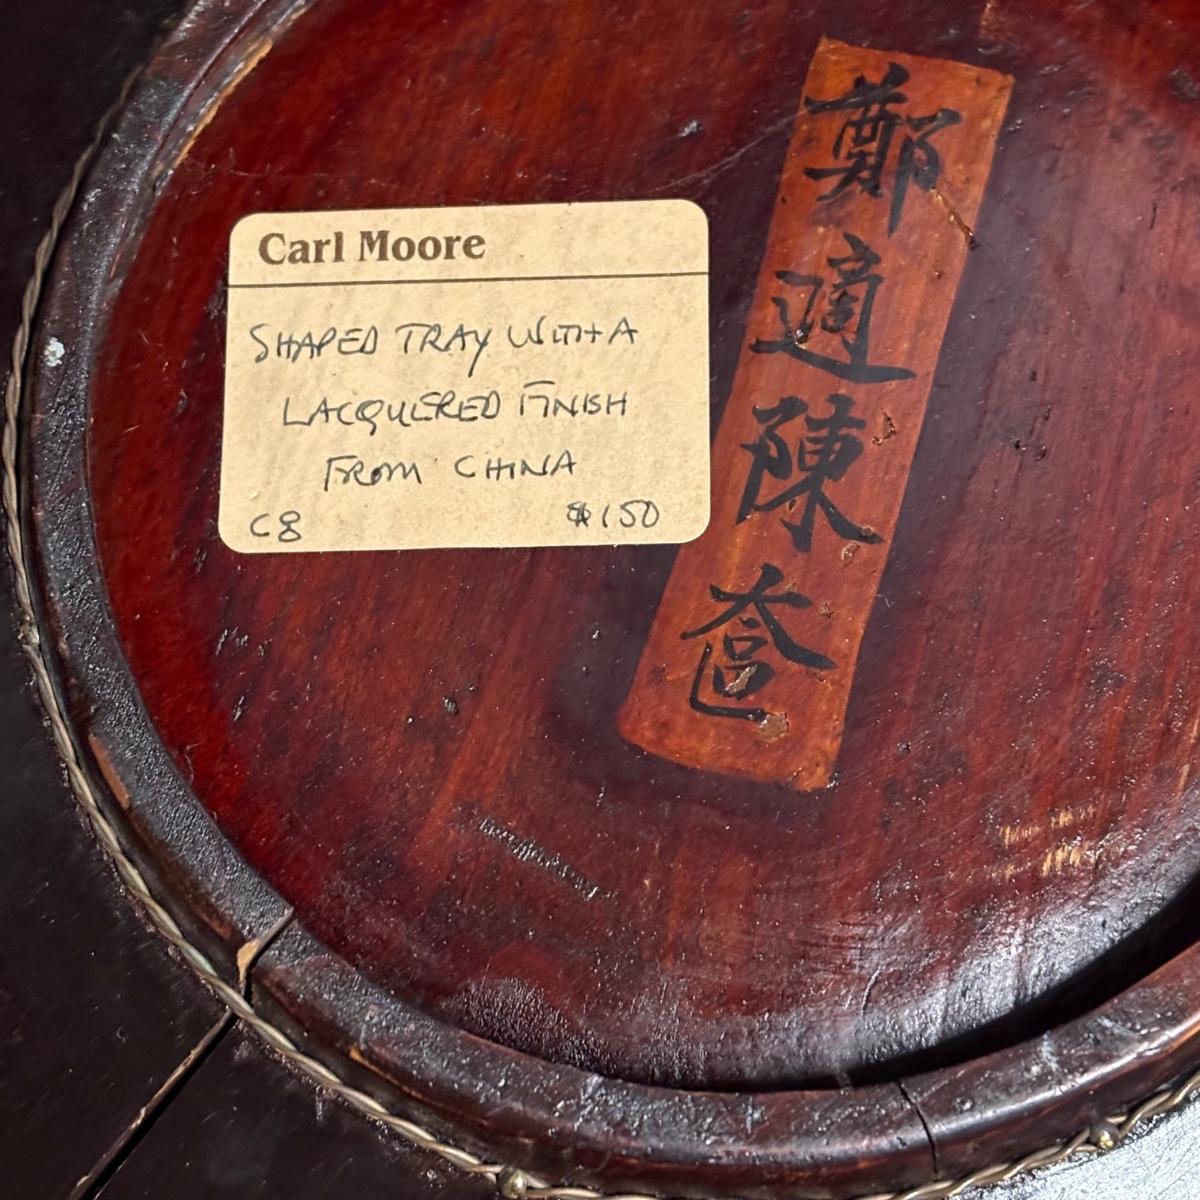 Carl Moore
SHAPED TRAY WITH A
LACQUERED FINISH
FROM CHINA
C8 $150
鄭適陳奩